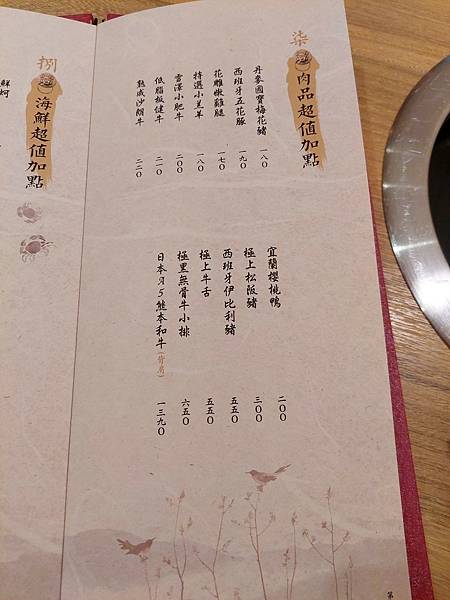 柒
肉品超值加點
丹麥國寶梅花豬 一八〇
西班牙五花豚 一九〇
花雕嫩雞腿 一七〇
特選小羔羊 一八〇
雪澤小肥牛 二〇〇
低脂板健牛 二一〇
熟成沙朗牛 二二〇
宜蘭櫻桃鴨 二〇〇
極上松阪豬 三〇〇
西班牙伊比利豬 五五〇
極上牛舌 五五〇
極黑無骨牛小排 六五〇
日本A5熊本和牛(背肩) 一三九〇
第
捌
海鮮超值加點
鮮蚵